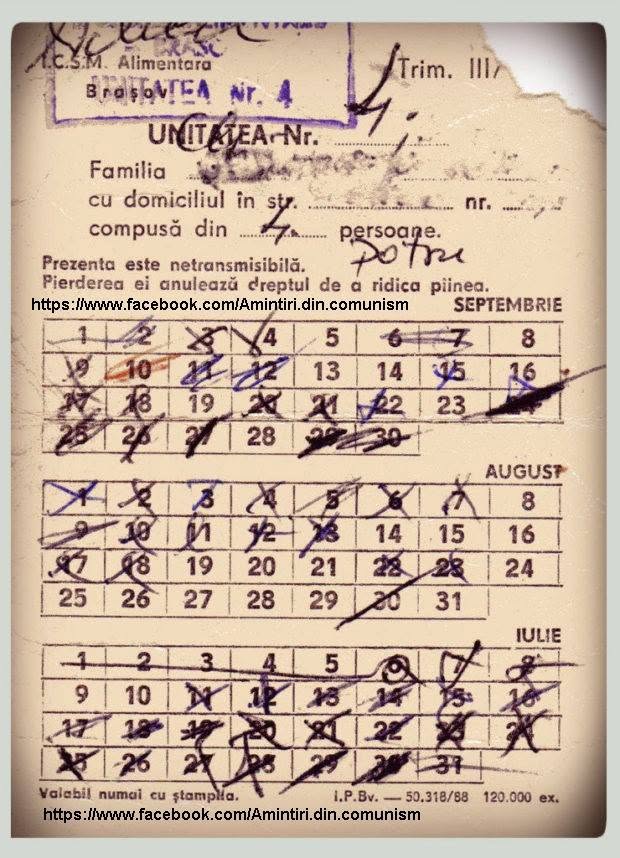 BRASO
I.C.S.M. Alimentara
Brașov
UNITATEA Nr. 4
Trim. III/
UNITATEA Nr. 4
Familia
cu domiciliul în str. nr.
compusă din 4 persoane.
patru
Prezenta este netransmisibilă.
Pierderea ei anulează dreptul de a ridica pîinea.
https://www.facebook.com/Amintiri.din.comunism
SEPTEMBRIE
1 2 3 4 5 6 7 8
9 10 11 12 13 14 15 16
17 18 19 20 21 22 23 24
25 26 27 28 29 30
AUGUST
1 2 3 4 5 6 7 8
9 10 11 12 13 14 15 16
17 18 19 20 21 22 23 24
25 26 27 28 29 30 31
IULIE
1 2 3 4 5 6 7 8
9 10 11 12 13 14 15 16
17 18 19 20 21 22 23 24
25 26 27 28 29 30 31
Valabil numai cu ștampila. I.P.Bv. — 50.318/88 120.000 ex.
https://www.facebook.com/Amintiri.din.comunism